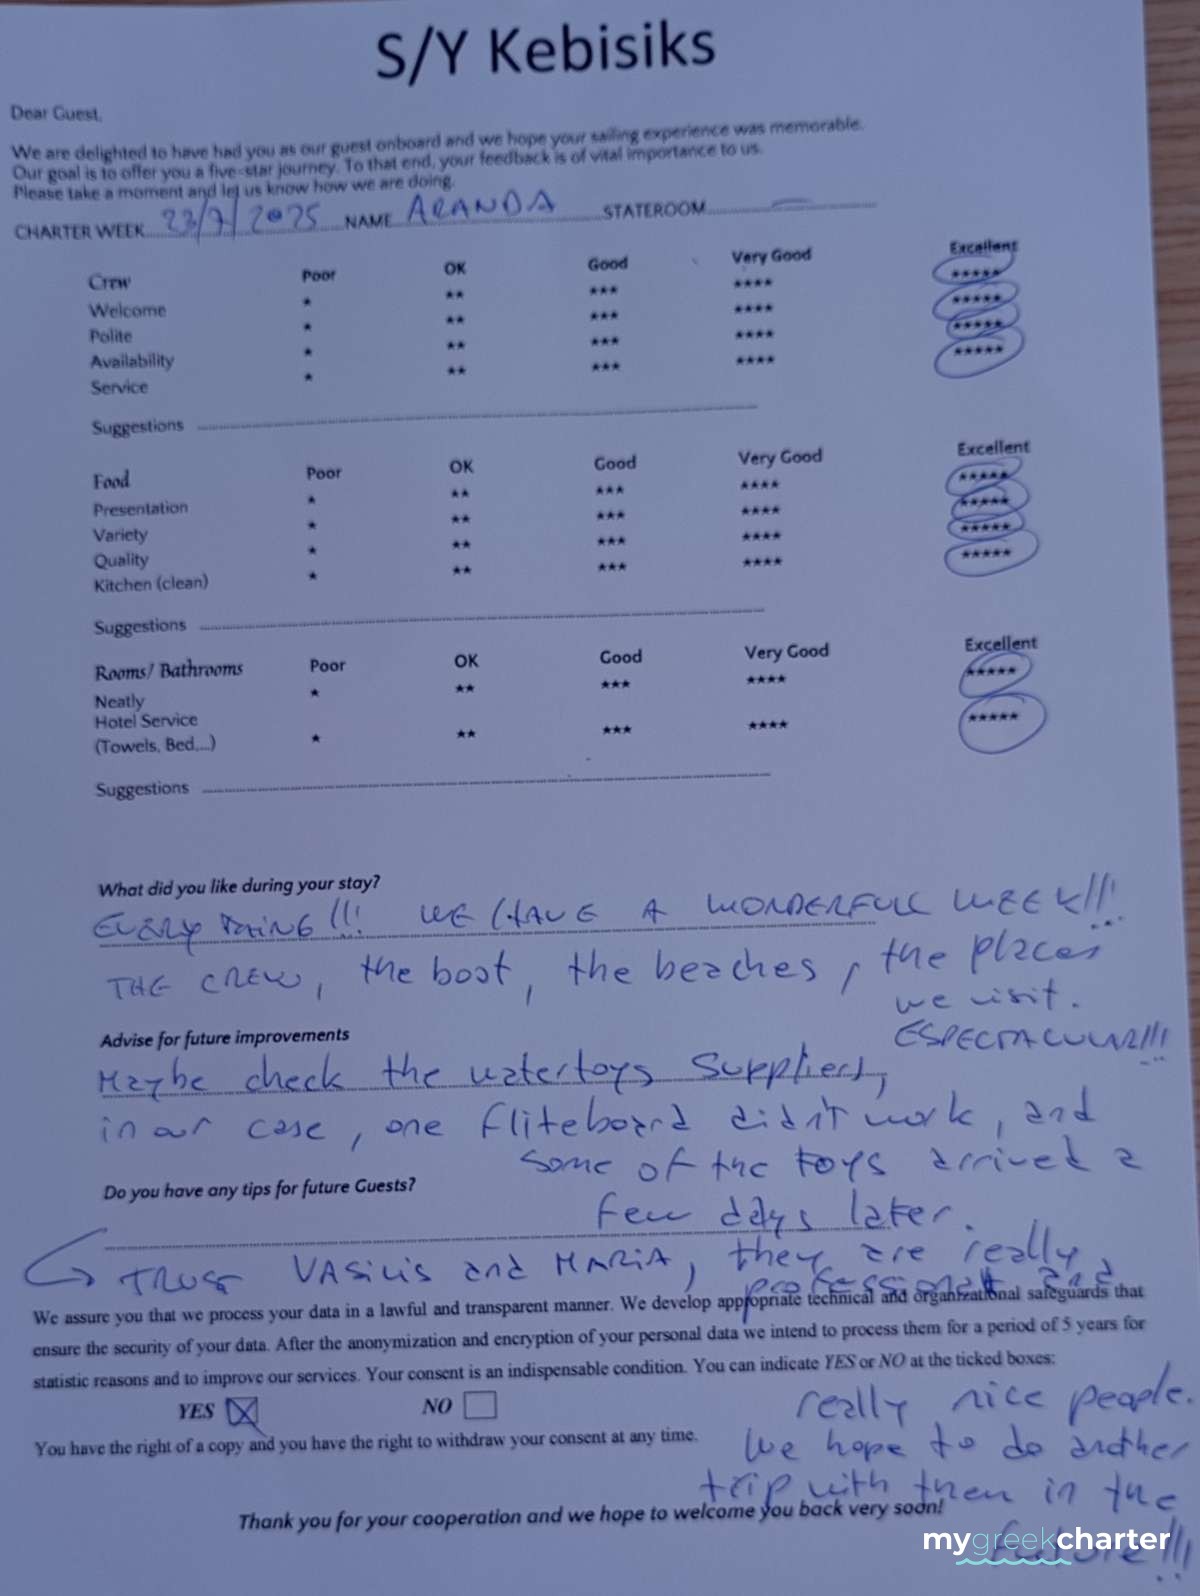 S/Y Kebisiks
Dear Guest,
We are delighted to have had you as our guest onboard and we hope your sailing experience was memorable.
Our goal is to offer you a five-star journey. To that end, your feedback is of vital importance to us.
Please take a moment and let us know how we are doing.
CHARTER WEEK 23/7/2025 NAME ARANDA STATEROOM —
Crew Poor OK Good Very Good Excellent
Welcome * ** *** **** *****
Polite * ** *** **** *****
Availability * ** *** **** *****
Service * ** *** **** *****
Suggestions
Food Poor OK Good Very Good Excellent
Presentation * ** *** **** *****
Variety * ** *** **** *****
Quality * ** *** **** *****
Kitchen (clean) * ** *** **** *****
Suggestions
Rooms/ Bathrooms Poor OK Good Very Good Excellent
Neatly * ** *** **** *****
Hotel Service
(Towels, Bed,...) * ** *** **** *****
Suggestions
What did you like during your stay?
EVERYTHING!!! WE HAVE A WONDERFULL WEEK!!!
THE CREW, the boat, the beaches, the places
we visit.
ESPECTACULAR!!!
Advise for future improvements
Maybe check the watertoys suppliers,
in our case, one fliteboard didn't work, and
some of the toys arrived a
few days later.
Do you have any tips for future Guests?
TRUST VASILIS and MARIA, they are really
professional and
We assure you that we process your data in a lawful and transparent manner. We develop appropriate technical and organizational safeguards that
ensure the security of your data. After the anonymization and encryption of your personal data we intend to process them for a period of 5 years for
statistic reasons and to improve our services. Your consent is an indispensable condition. You can indicate YES or NO at the ticked boxes:
YES NO
really nice people.
You have the right of a copy and you have the right to withdraw your consent at any time.
We hope to do another
trip with them in the
future!!!
Thank you for your cooperation and we hope to welcome you back very soon!
mygreekcharter